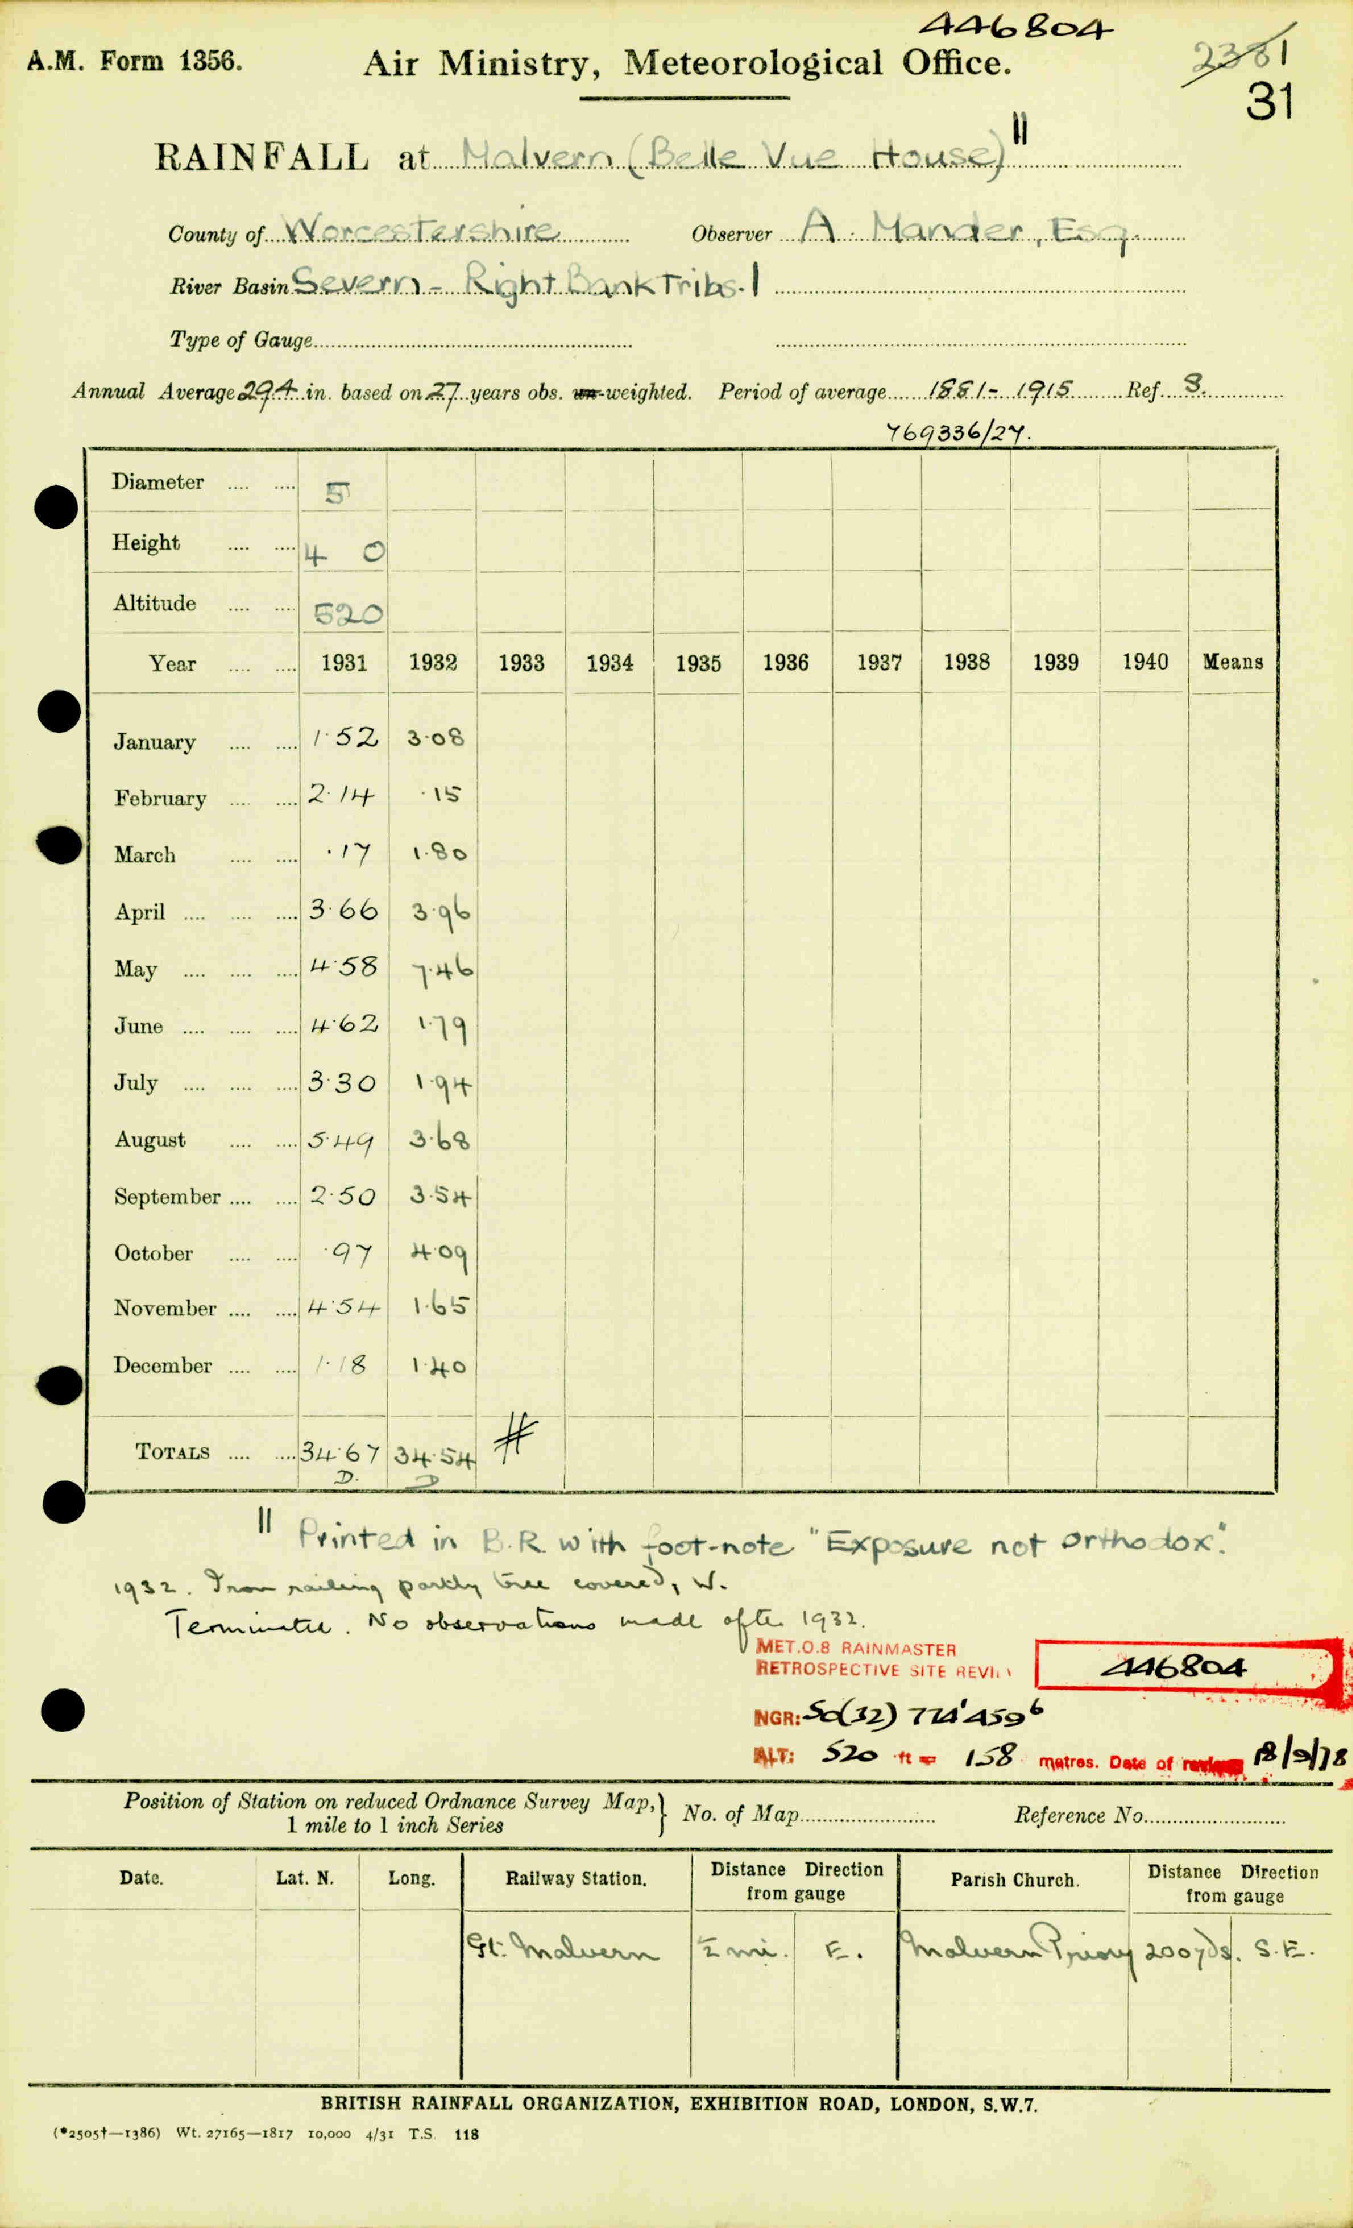 446804
A.M. Form 1356. Air Ministry, Meteorological Office. 2381
31
RAINFALL at Malvern (Belle Vue House) ||
County of Worcestershire Observer A. Mander, Esq.
River Basin Severn - Right Bank Tribs. 1
Type of Gauge
Annual Average 29.4 in. based on 27 years obs. un-weighted. Period of average 1881 - 1915 Ref. 8.
769336/27.
Diameter .... .... 5
Height .... .... 4 0
Altitude .... .... 520
Year .... .... 1931 1932 1933 1934 1935 1936 1937 1938 1939 1940 Means
January .... .... 1.52 3.08
February .... .... 2.14 .15
March .... .... .17 1.80
April .... .... .... 3.66 3.96
May .... .... .... 4.58 7.46
June .... .... .... 4.62 1.79
July .... .... .... 3.30 1.94
August .... .... 5.49 3.68
September .... .... 2.50 3.54
October .... .... .97 4.09
November .... .... 4.54 1.65
December .... .... 1.18 1.40
TOTALS .... .... 34.67 34.54 #
D. D
|| Printed in B.R. with foot-note "Exposure not orthodox".
1932. Iron railing partly tree covered, W.
Terminated. No observations made after 1932.
MET.O.8 RAINMASTER
RETROSPECTIVE SITE REVI 446804
NGR: SO(32) 774' 459 6
ALT: 520 ft = 158 metres. Date of review 18/9/78
Position of Station on reduced Ordnance Survey Map, } No. of Map Reference No.
1 mile to 1 inch Series
Date. Lat. N. Long. Railway Station. Distance Direction from gauge Parish Church. Distance Direction from gauge
Gt. Malvern ½ mi. E. Malvern Priory 200 yds. S.E.
BRITISH RAINFALL ORGANIZATION, EXHIBITION ROAD, LONDON, S.W.7.
(*2505†—1386) Wt. 27165—1817 10,000 4/31 T.S. 118